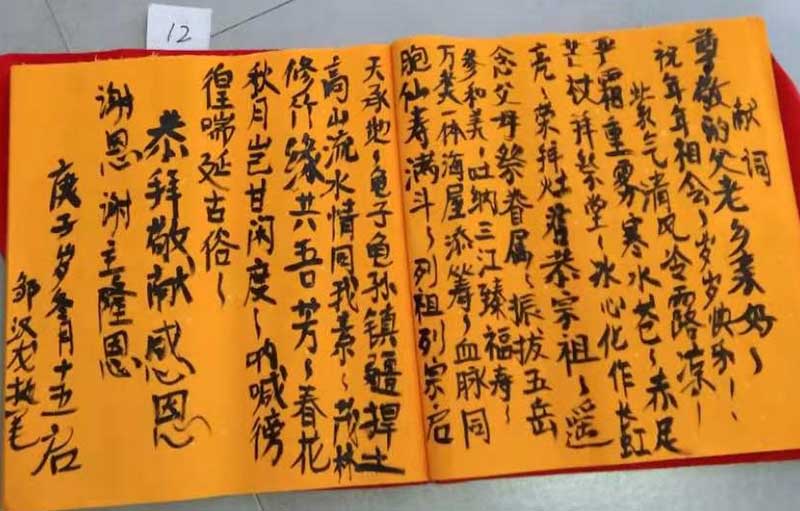 12
献词
尊敬的父老乡亲好～
祝年年相会～岁岁快乐！
紫气清风冷露凉～
严霜重雾寒水苍～赤足
芒杖拜祭堂～冰心化作虹
亮～荣拜灶君恭宗祖～遥
念父母祭眷属～振拔五岳
参和美～吐纳三江臻福寿～
万类一体海屋添筹～血脉同
胞仙寿满斗～列祖列宗启
天承地～龟子龟孙镇疆捍土
高山流水情同我素～茂林
修竹缘共吾芳～春花
秋月岂甘闲度～呐喊徬
徨喘延古俗～
恭拜敬献感恩
谢恩谢主隆恩
庚子岁冬月十五启
邹汉龙拙笔